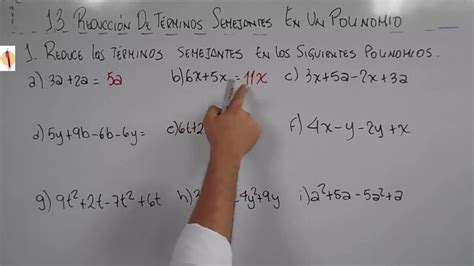 1.3 REDUCCIÓN DE TÉRMINOS SEMEJANTES EN UN POLINOMIO
1. REDUCE LOS TÉRMINOS SEMEJANTES EN LOS SIGUIENTES POLINOMIOS.
a) 3a+2a = 5a b) 6x+5x = 11x c) 3x+5a-2x+3a
d) 5y+9b-6b-6y= e) 6t+2 f) 4x-y-2y+x
g) 9t²+2t-7t²+6t h) 3 -4y²+9y i) a²+5a-5a²+a